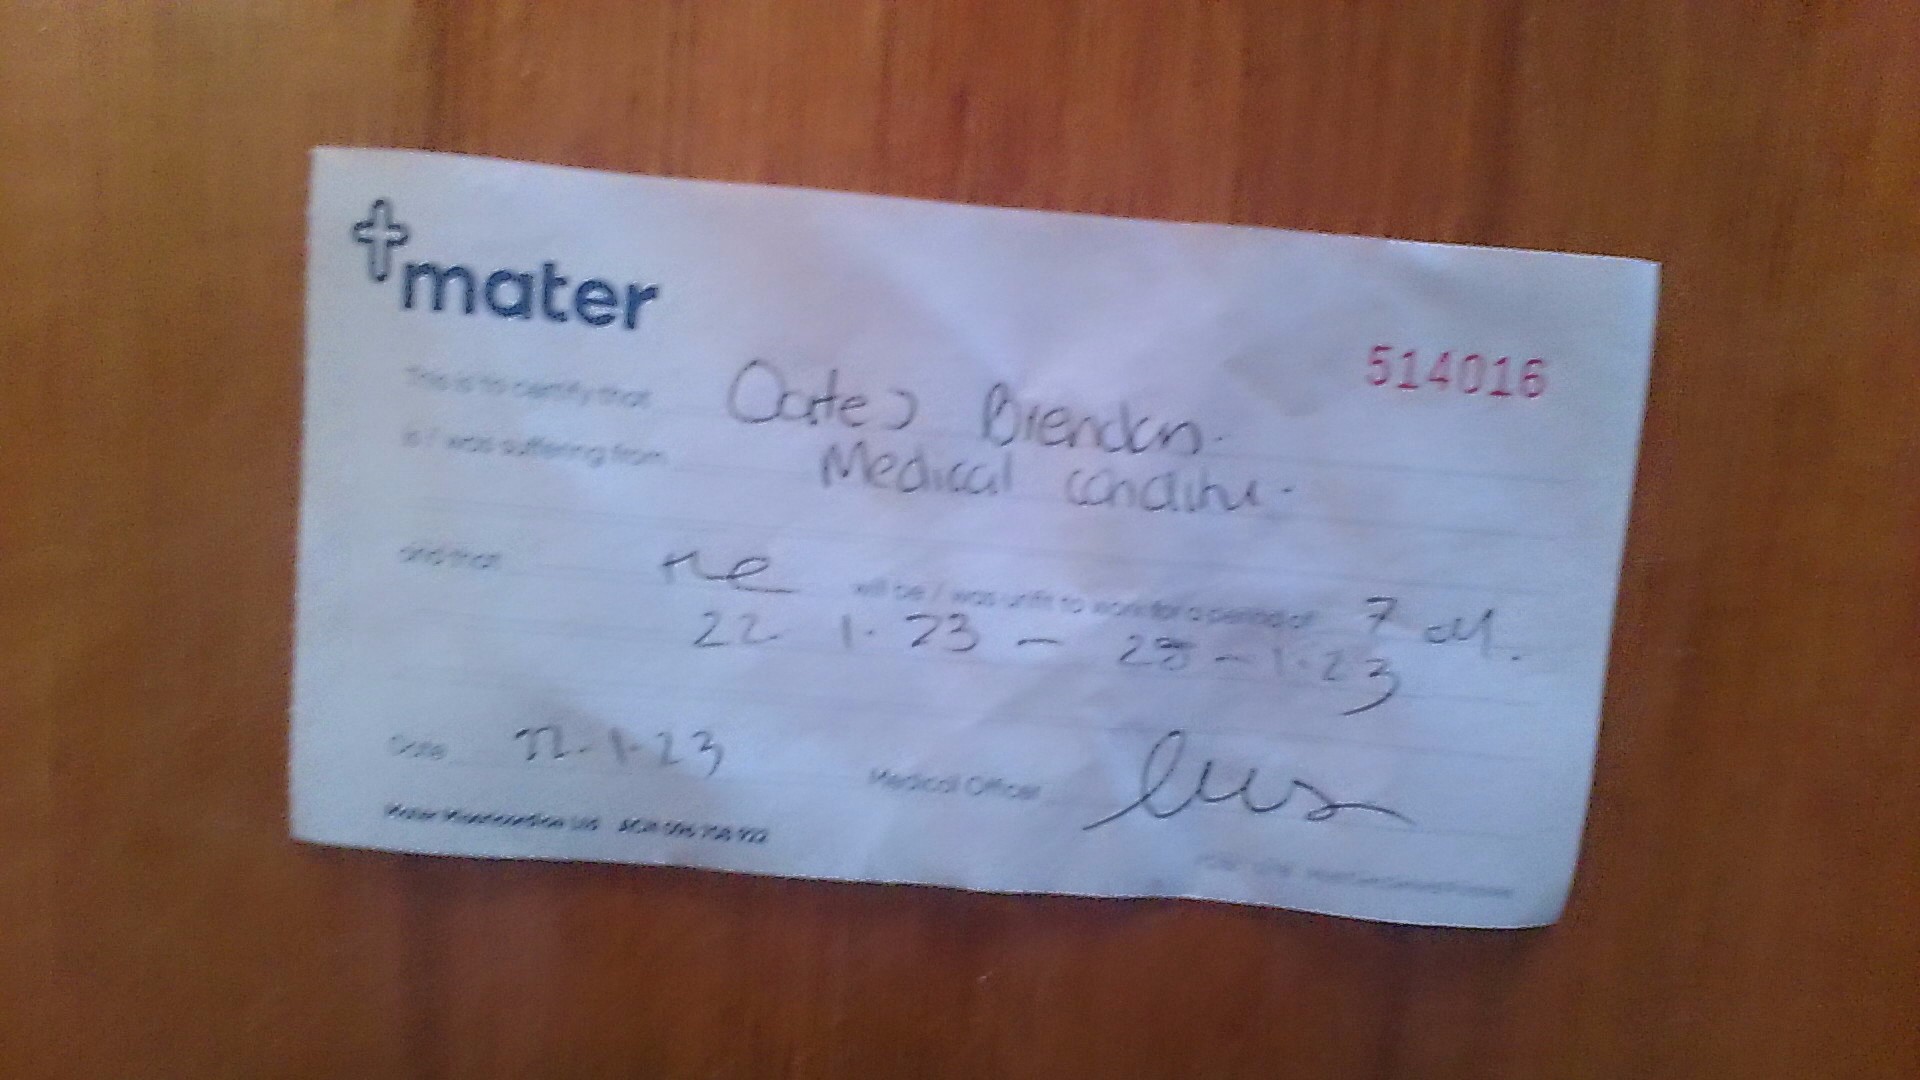 mater
514016
This is to certify that Oates Brendan.
is / was suffering from Medical condition.
and that he will be / was unfit to work for a period of 7
22 1. 23 - 28 - 1. 23
Date 22.1.23 Medical Officer
Mater Misericordiae Ltd